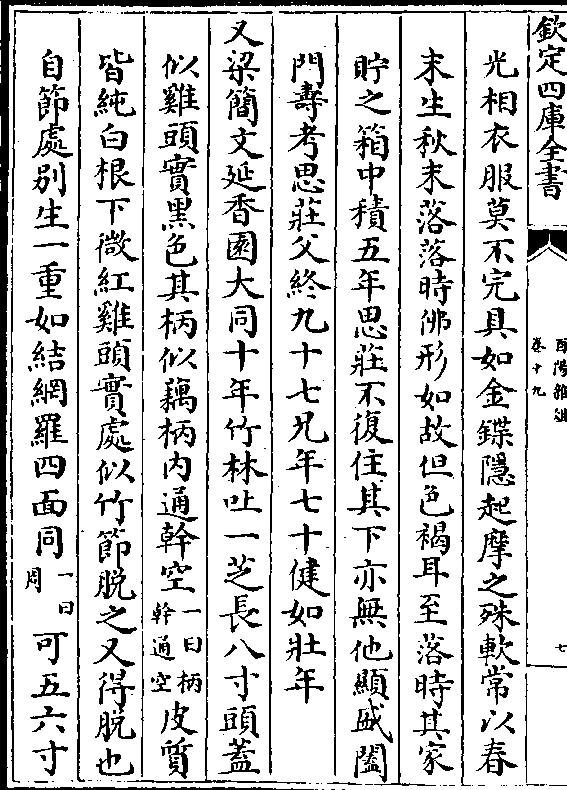 欽定四庫全書
酉陽雜俎
卷十九
七
光相衣服莫不完具如金鍱隱起摩之殊軟常以春
末生秋末落落時佛形如故但色褐耳至落時其家
貯之箱中積五年思莊不復住其下亦無他顯盛闔
門壽考思莊父終九十七兄年七十健如壯年
又梁簡文延香園大同十年竹林吐一芝長八寸頭蓋
似雞頭實黑色其柄似藕柄内通幹空一曰柄幹通空皮質
皆純白根下微紅雞頭實處似竹節脱之又得脱也
自節處别生一重如結網羅四面同一曰周可五六寸